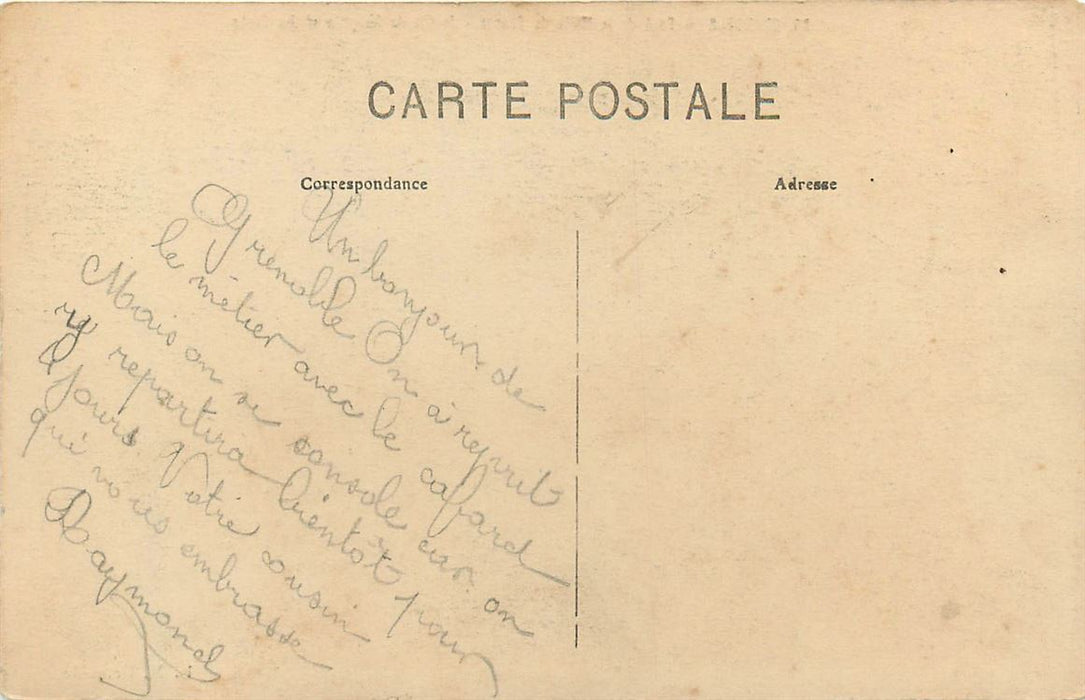 CARTE POSTALE
Correspondance
Adresse
Un bonjour de
Grenoble On à reprit
le métier avec le cafard
Mais on se console car on
y repartira bientôt pour
jours. Votre cousin
qui vous embrasse
Raymond